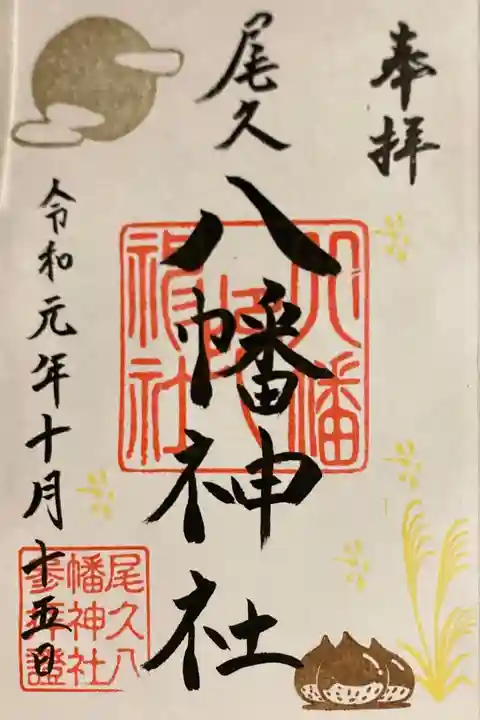 奉拝
尾久
八幡神社
令和元年十月十五日
尾久八
幡神社
参拝證